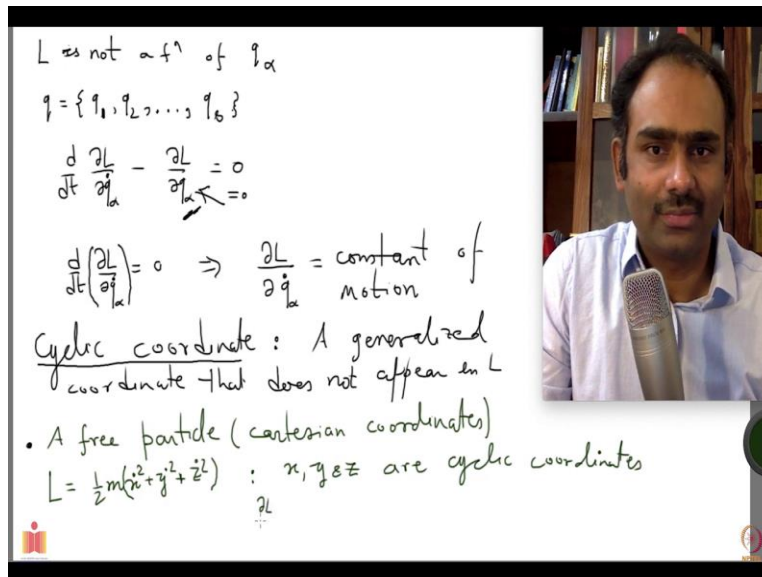 L is not a fⁿ of q_α
q = {q₁, q₂, ..., q_s}
d/dt ∂L/∂q̇_α - ∂L/∂q_α = 0
= 0
d/dt(∂L/∂q̇_α) = 0 ⇒ ∂L/∂q̇_α = constant of
motion
Cyclic coordinate : A generalized
coordinate that does not appear in L
• A free particle (cartesian coordinates)
L = 1/2 m(ẋ² + ẏ² + ż²) : x, y & z are cyclic coordinates
∂L
NPTEL